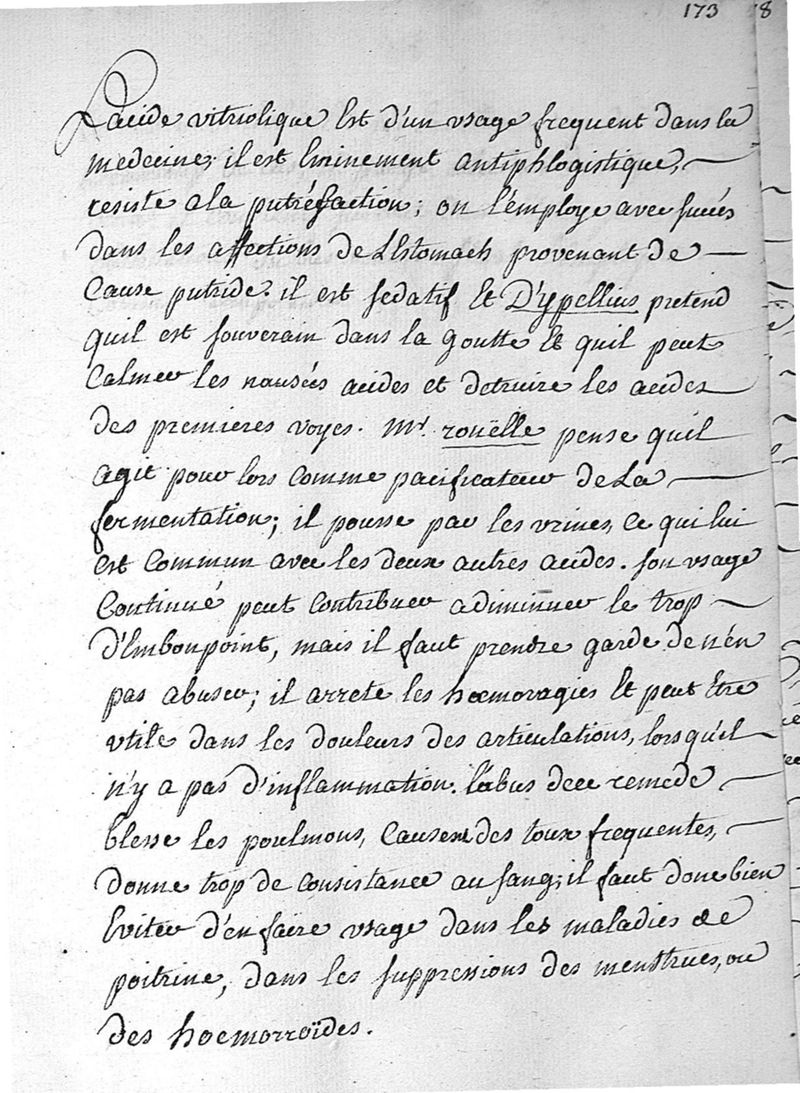 173 8
L'acide vitriolique Est d'un usage frequent dans la
medecine; il est Eminement antiphlogistique,
resiste a la putréfaction; on l'employe avec succés
dans les affections de L'Estomach provenant de
Cause putride. il est sedatif Et D'ypellius pretend
quil est souverain dans la goutte Et quil peut
Calmer les nausées acides et detruire les acides
des premieres voyes. Mr. rouëlle pense quil
agit pour lors comme pacificateur de La
fermentation; il pousse par les urines, Ce qui lui
est Commun avec les deux autres acides. son usage
Continué peut Contribuer a diminuer le trop
d'Embonpoint, mais il faut prendre garde de n'én
pas abuser; il arrete les hœmoragies Et peut Etre
utile dans les douleurs des articulations, lorsqu'il
n'y a pas d'inflammation. l'abus de ce remede
blesse les poulmons, Cause des toux frequentes,
donne trop de Consistance au sang; il faut donc bien
Eviter d'en faire usage dans les maladies de
poitrine, dans les suppressions des menstrues, ou
des hœmorroïdes.